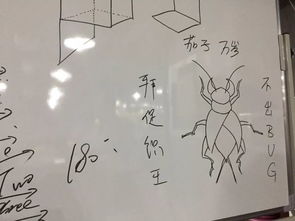 茄子 万岁
拜促织王
不出BUG
180°
Two
three